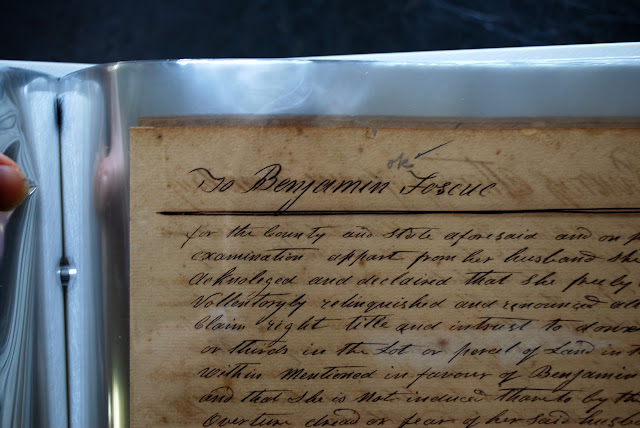 ok
To Benjamin Foscue
for the County and State aforesaid and on p
examination appart from her husband she
acknoleged and declaired that she freely
Vollentoryly relinquished and renounced all
Claim right title and intrist to
or thirds in the Lot or parcel of Land in t
within Mentioned in favour of Benjamin
and that she is Not induced thareto by th
dread or fear of her said husb